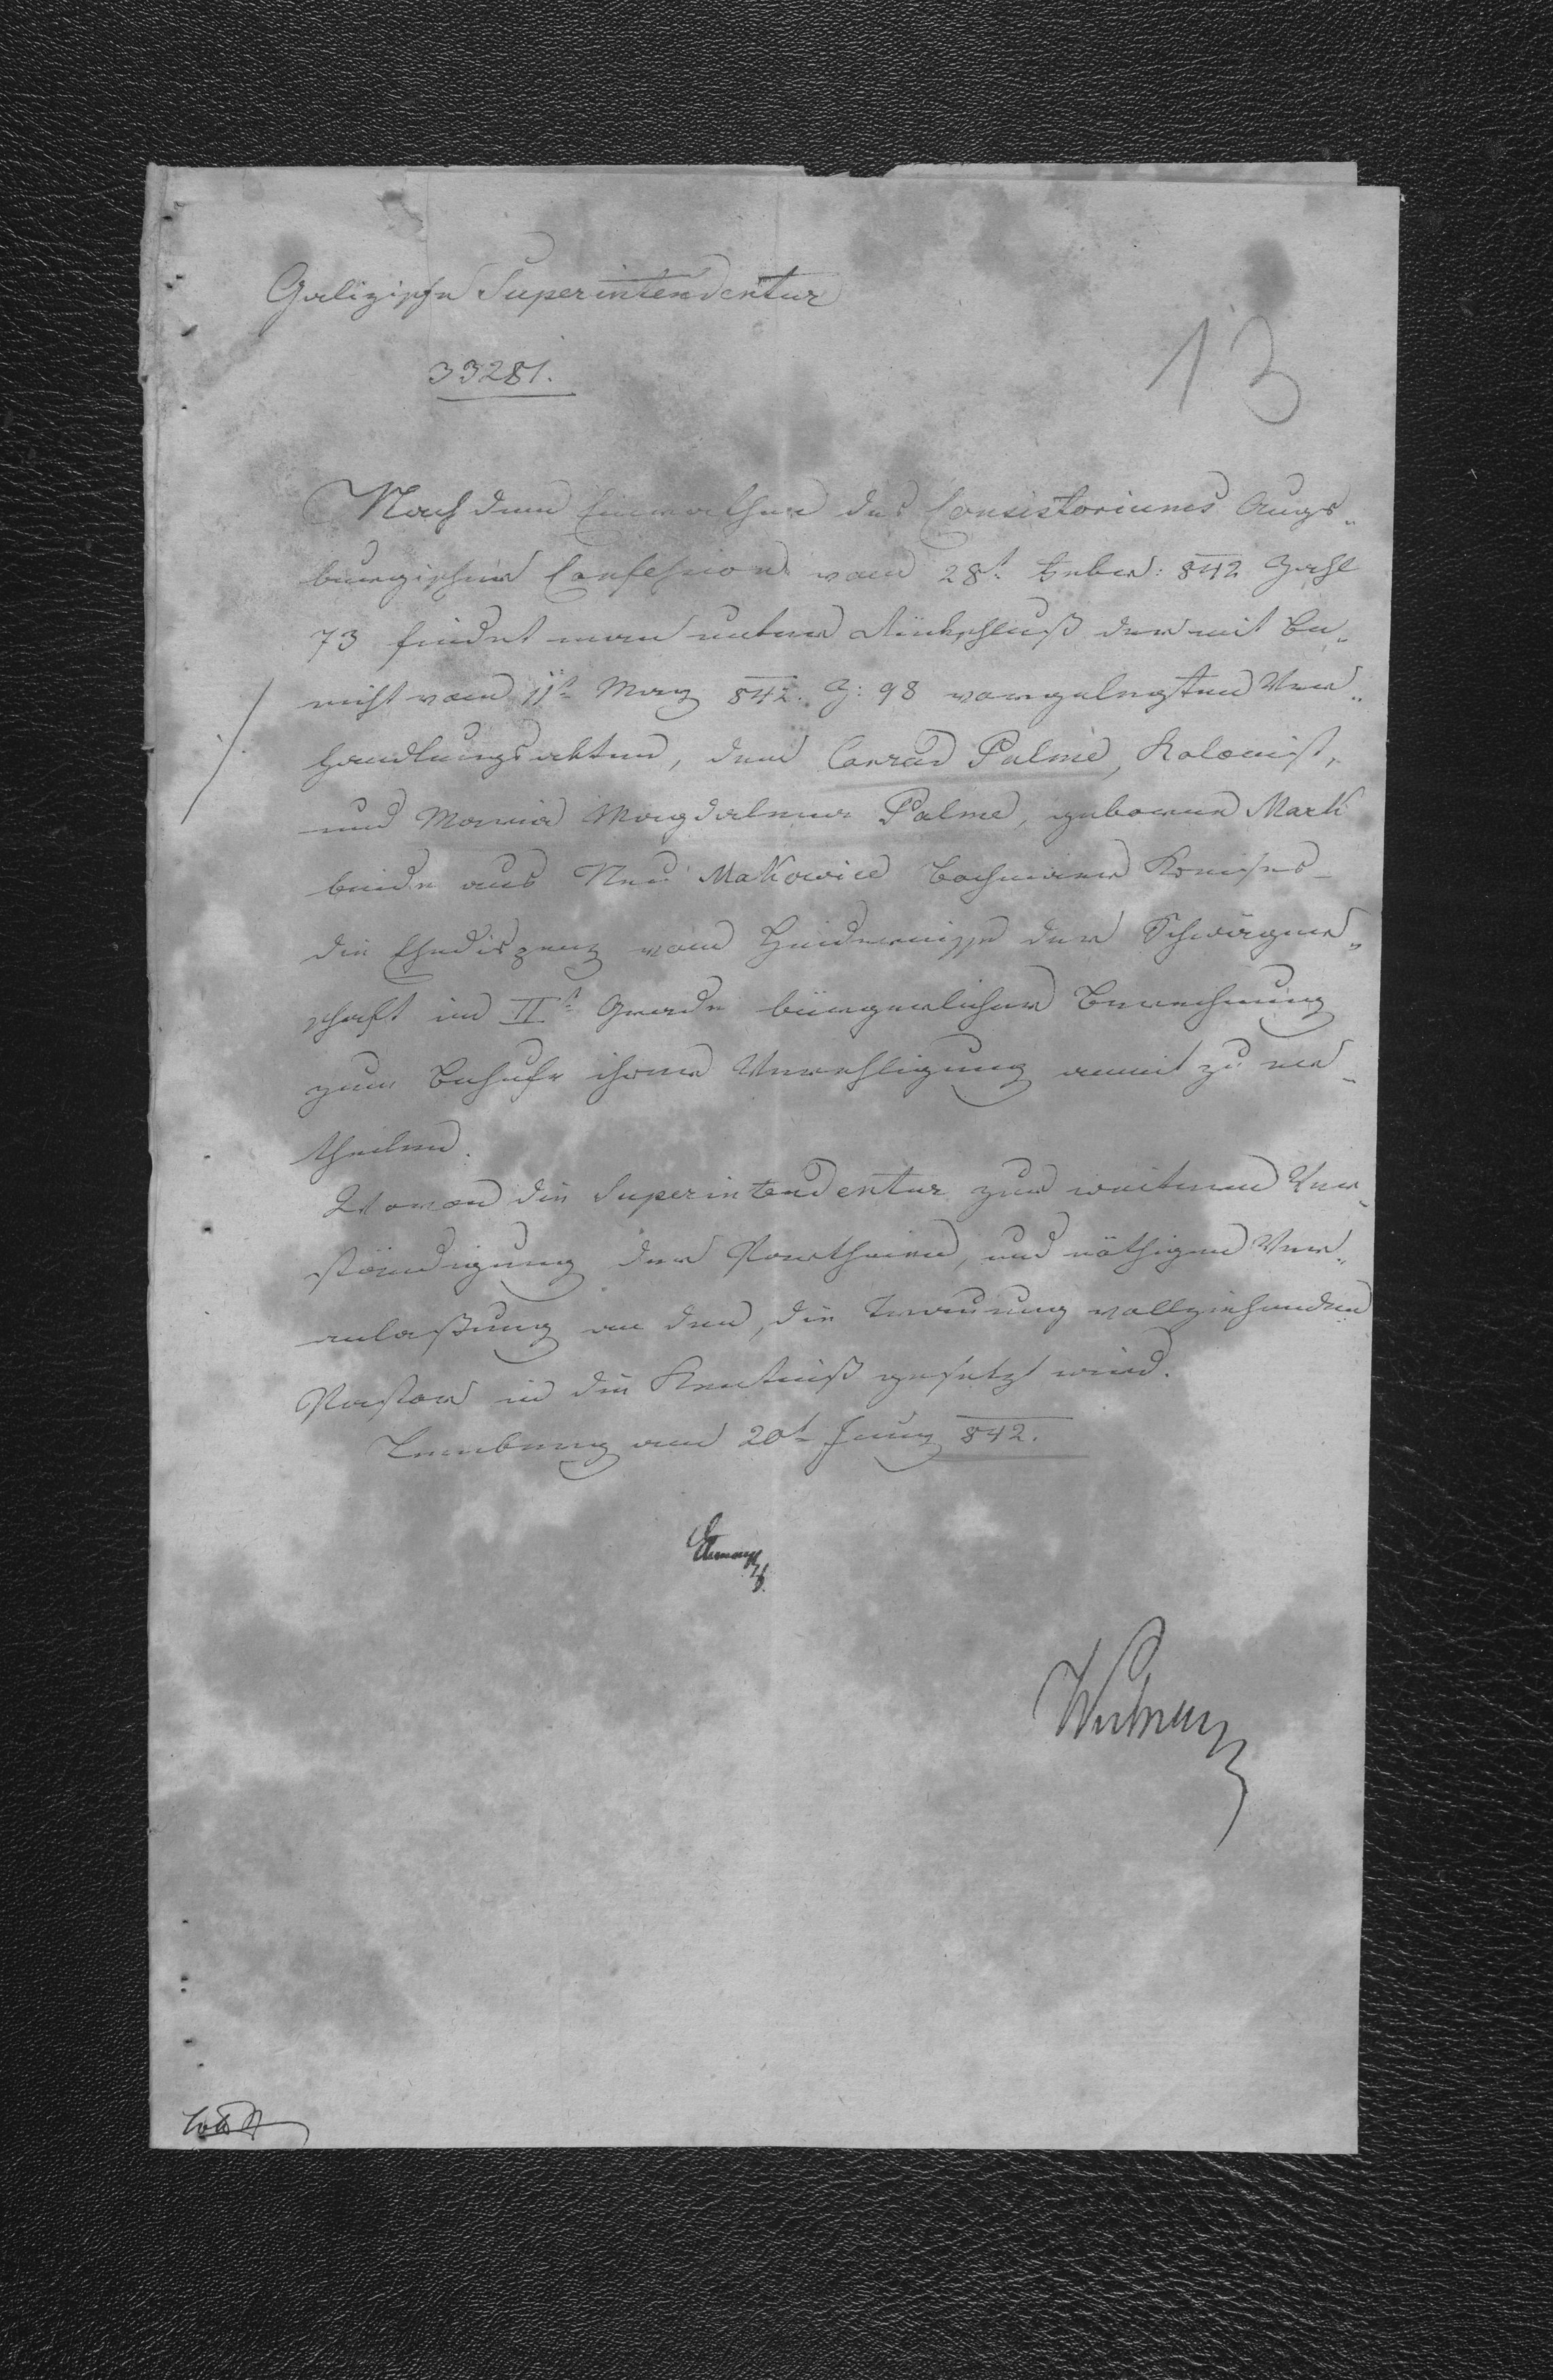 Galizische Superintendentur
33281.
13
Nach dem Einrathen des Consistoriums Augs„
burgischer Confession vom 28t. Feber: 842 Zahl
73 findet man unter Rückschluß der mit Be„
richt vom 11t May 842. Z: 98 vorgelegten Ver„
handlungsakten, dem Conrad Palme, Kolonist,
und Maria Magdalena Palme, geborene Mark
beide aus Neu Makowice Bochnier Kreises
die Ehedispenz vom Hindernisse der Schwäger„
schaft im IIt Grade bürgerlicher Berechnung
zum Behufe ihrer Verehligung anmit zu er„
theilen.
Wovon die Superintendentur zur weiteren Ver„
ständigung der Partheien, und nöthigen Ver„
anlaßung an den, die Trauung vollziehenden
Pastor in die Kentniß gesetzt wird.
Lemberg am 20t Juny 842.